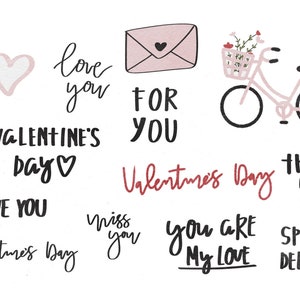 love
you
FOR
YOU
VALENTINE'S
DAY
Valentine's Day
YOU
miss
you
you ARE
MY LOVE
Day